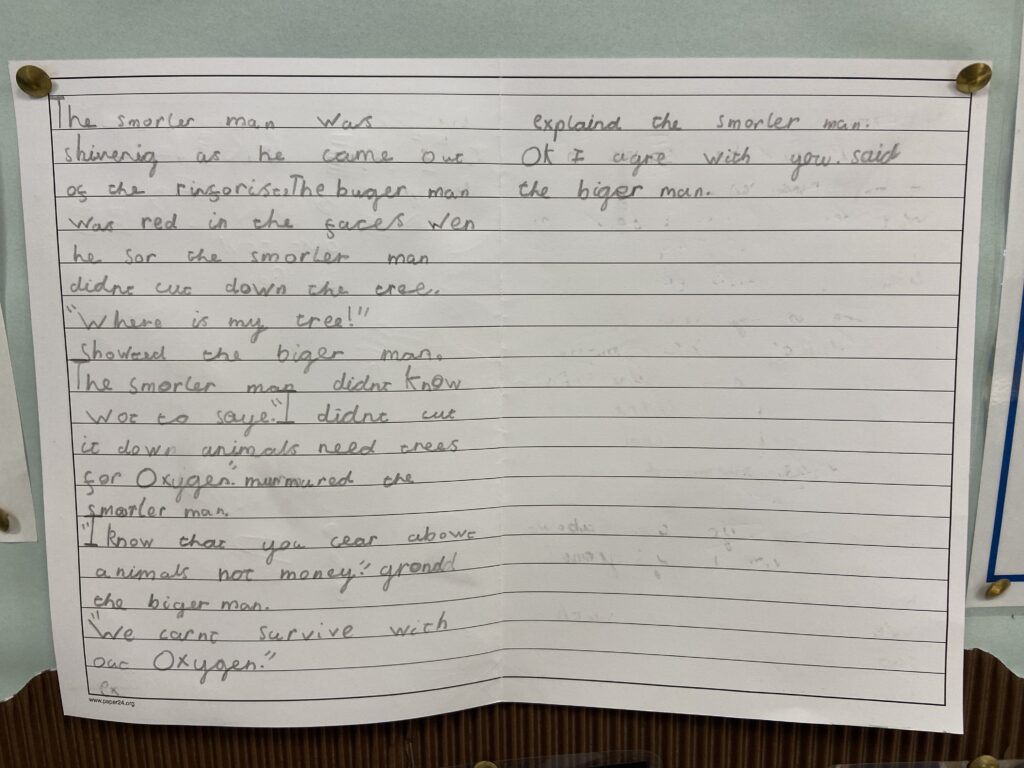 The smorler man was
shivering as he came out
of the rinforist. The buger man
was red in the faces wen
he sor the smorler man
didnt cut down the tree.
"Where is my tree!"
Showted the biger man.
The smorler man didnt know
wot to saye. "I didnt cut
it down animals need trees
for Oxygen." murmured the
smorler man.
"I know that you cear abowt
animals not money." grondd
the biger man.
"We carnt survive with
out Oxygen."
ex
www.paper24.org
explaind the smorler man.
Ok I agre with you. said
the biger man.